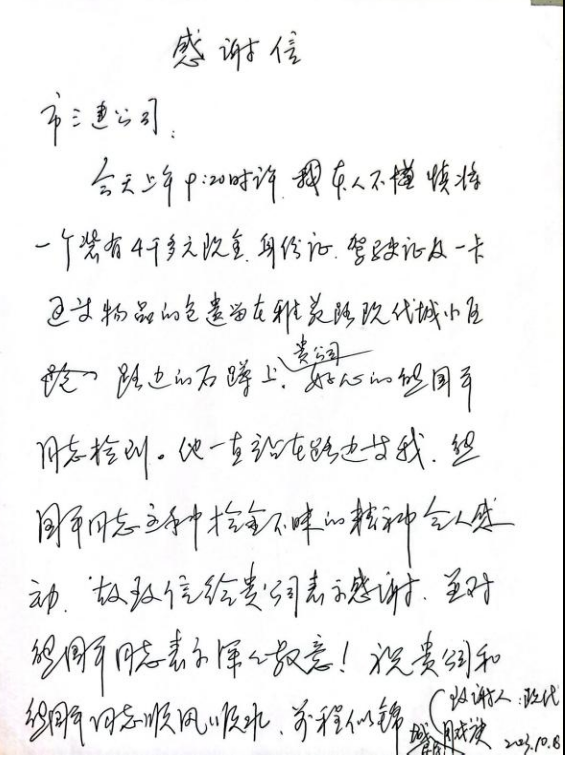 感谢信
市三建公司:
今天上午9:20时许,我本人不慎将
一个装有4千多元现金、身份证、驾驶证及一卡
通等物品的包遗留在雅美路现代城小区
路边的石蹲上,贵公司好心的熊国平
同志捡到。他一直站在路边等我,熊
国平同志这种拾金不昧的精神令人感
动,故致信给贵公司表示感谢,并对
熊国平同志表示深心敬意!祝贵公司和
熊国平同志顺风顺水,前程似锦
(致谢人:现代
城 2023.10.8